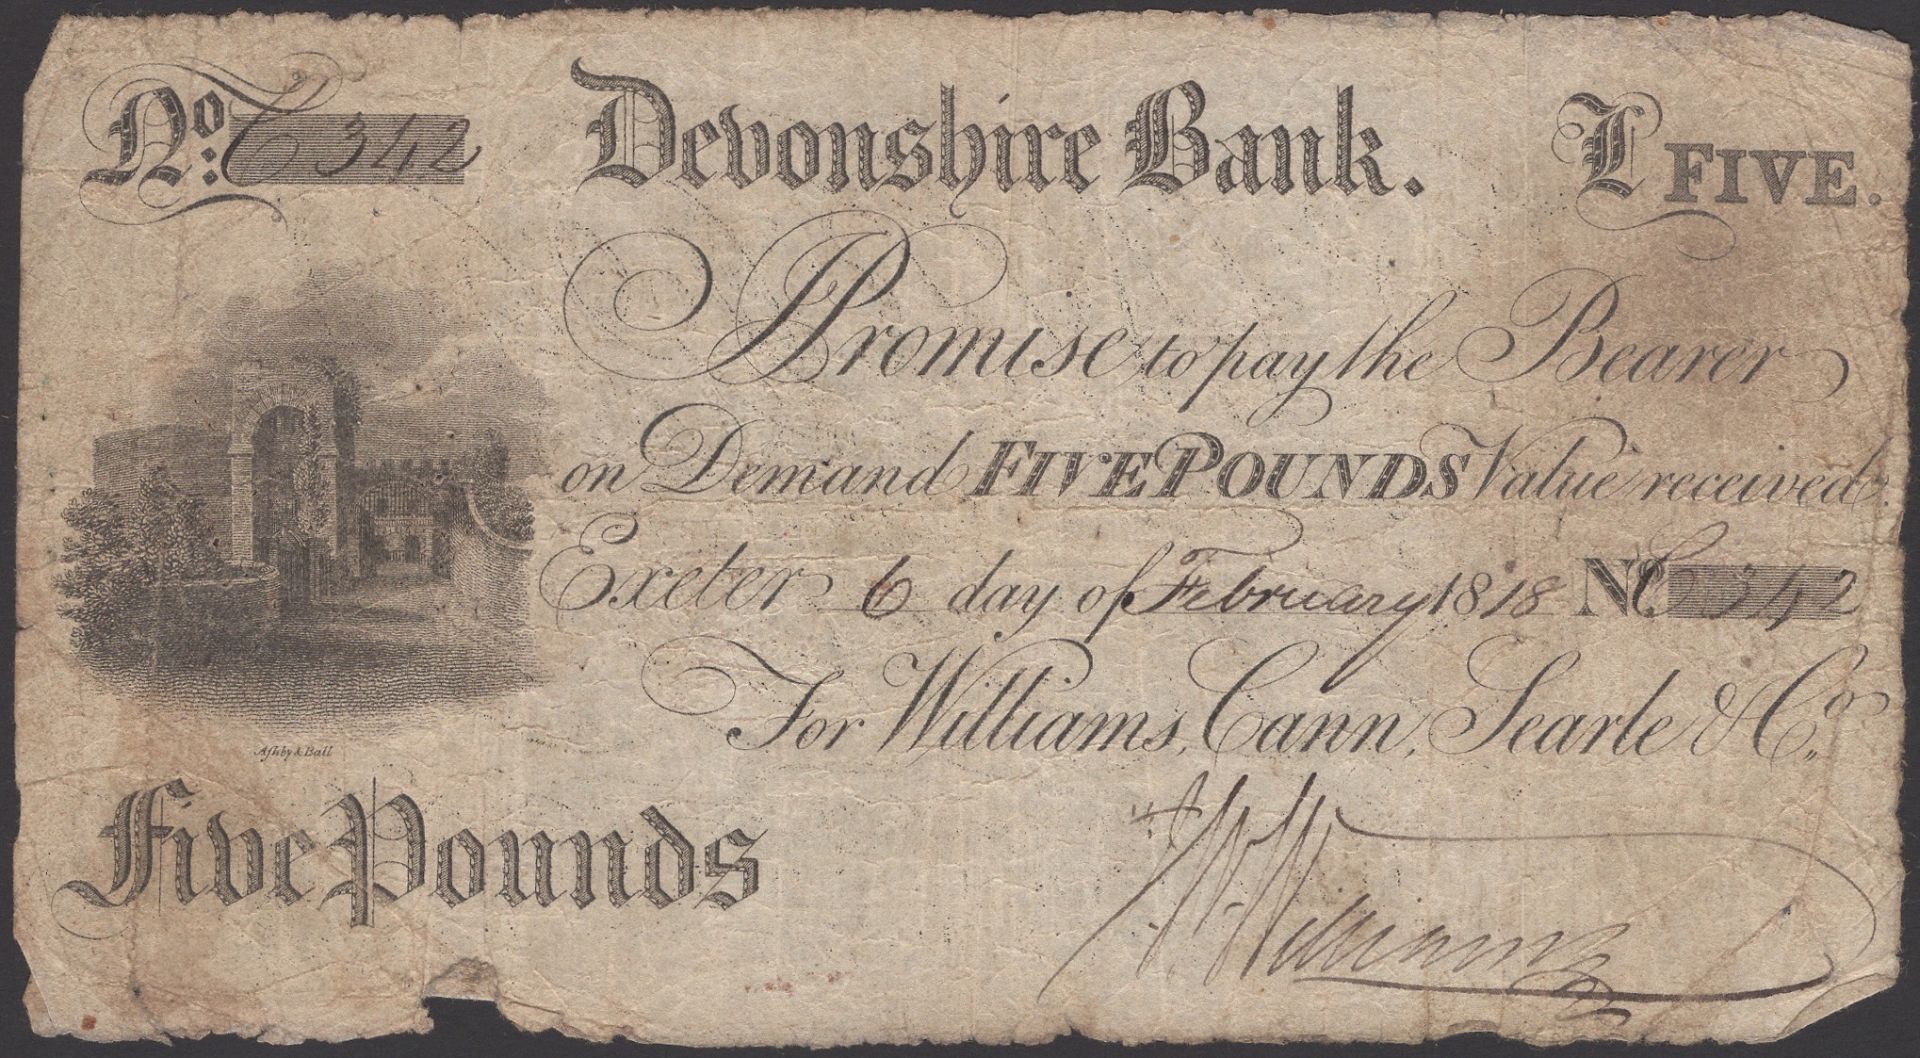 No: C 342 Devonshire Bank. £ FIVE.
I Promise to pay the Bearer
on Demand FIVE POUNDS Value received.
Exeter 6 day of February 1818 No. C 342
For Williams, Cann, Searle & Co.
Ashby & Ball
Five Pounds
Williams